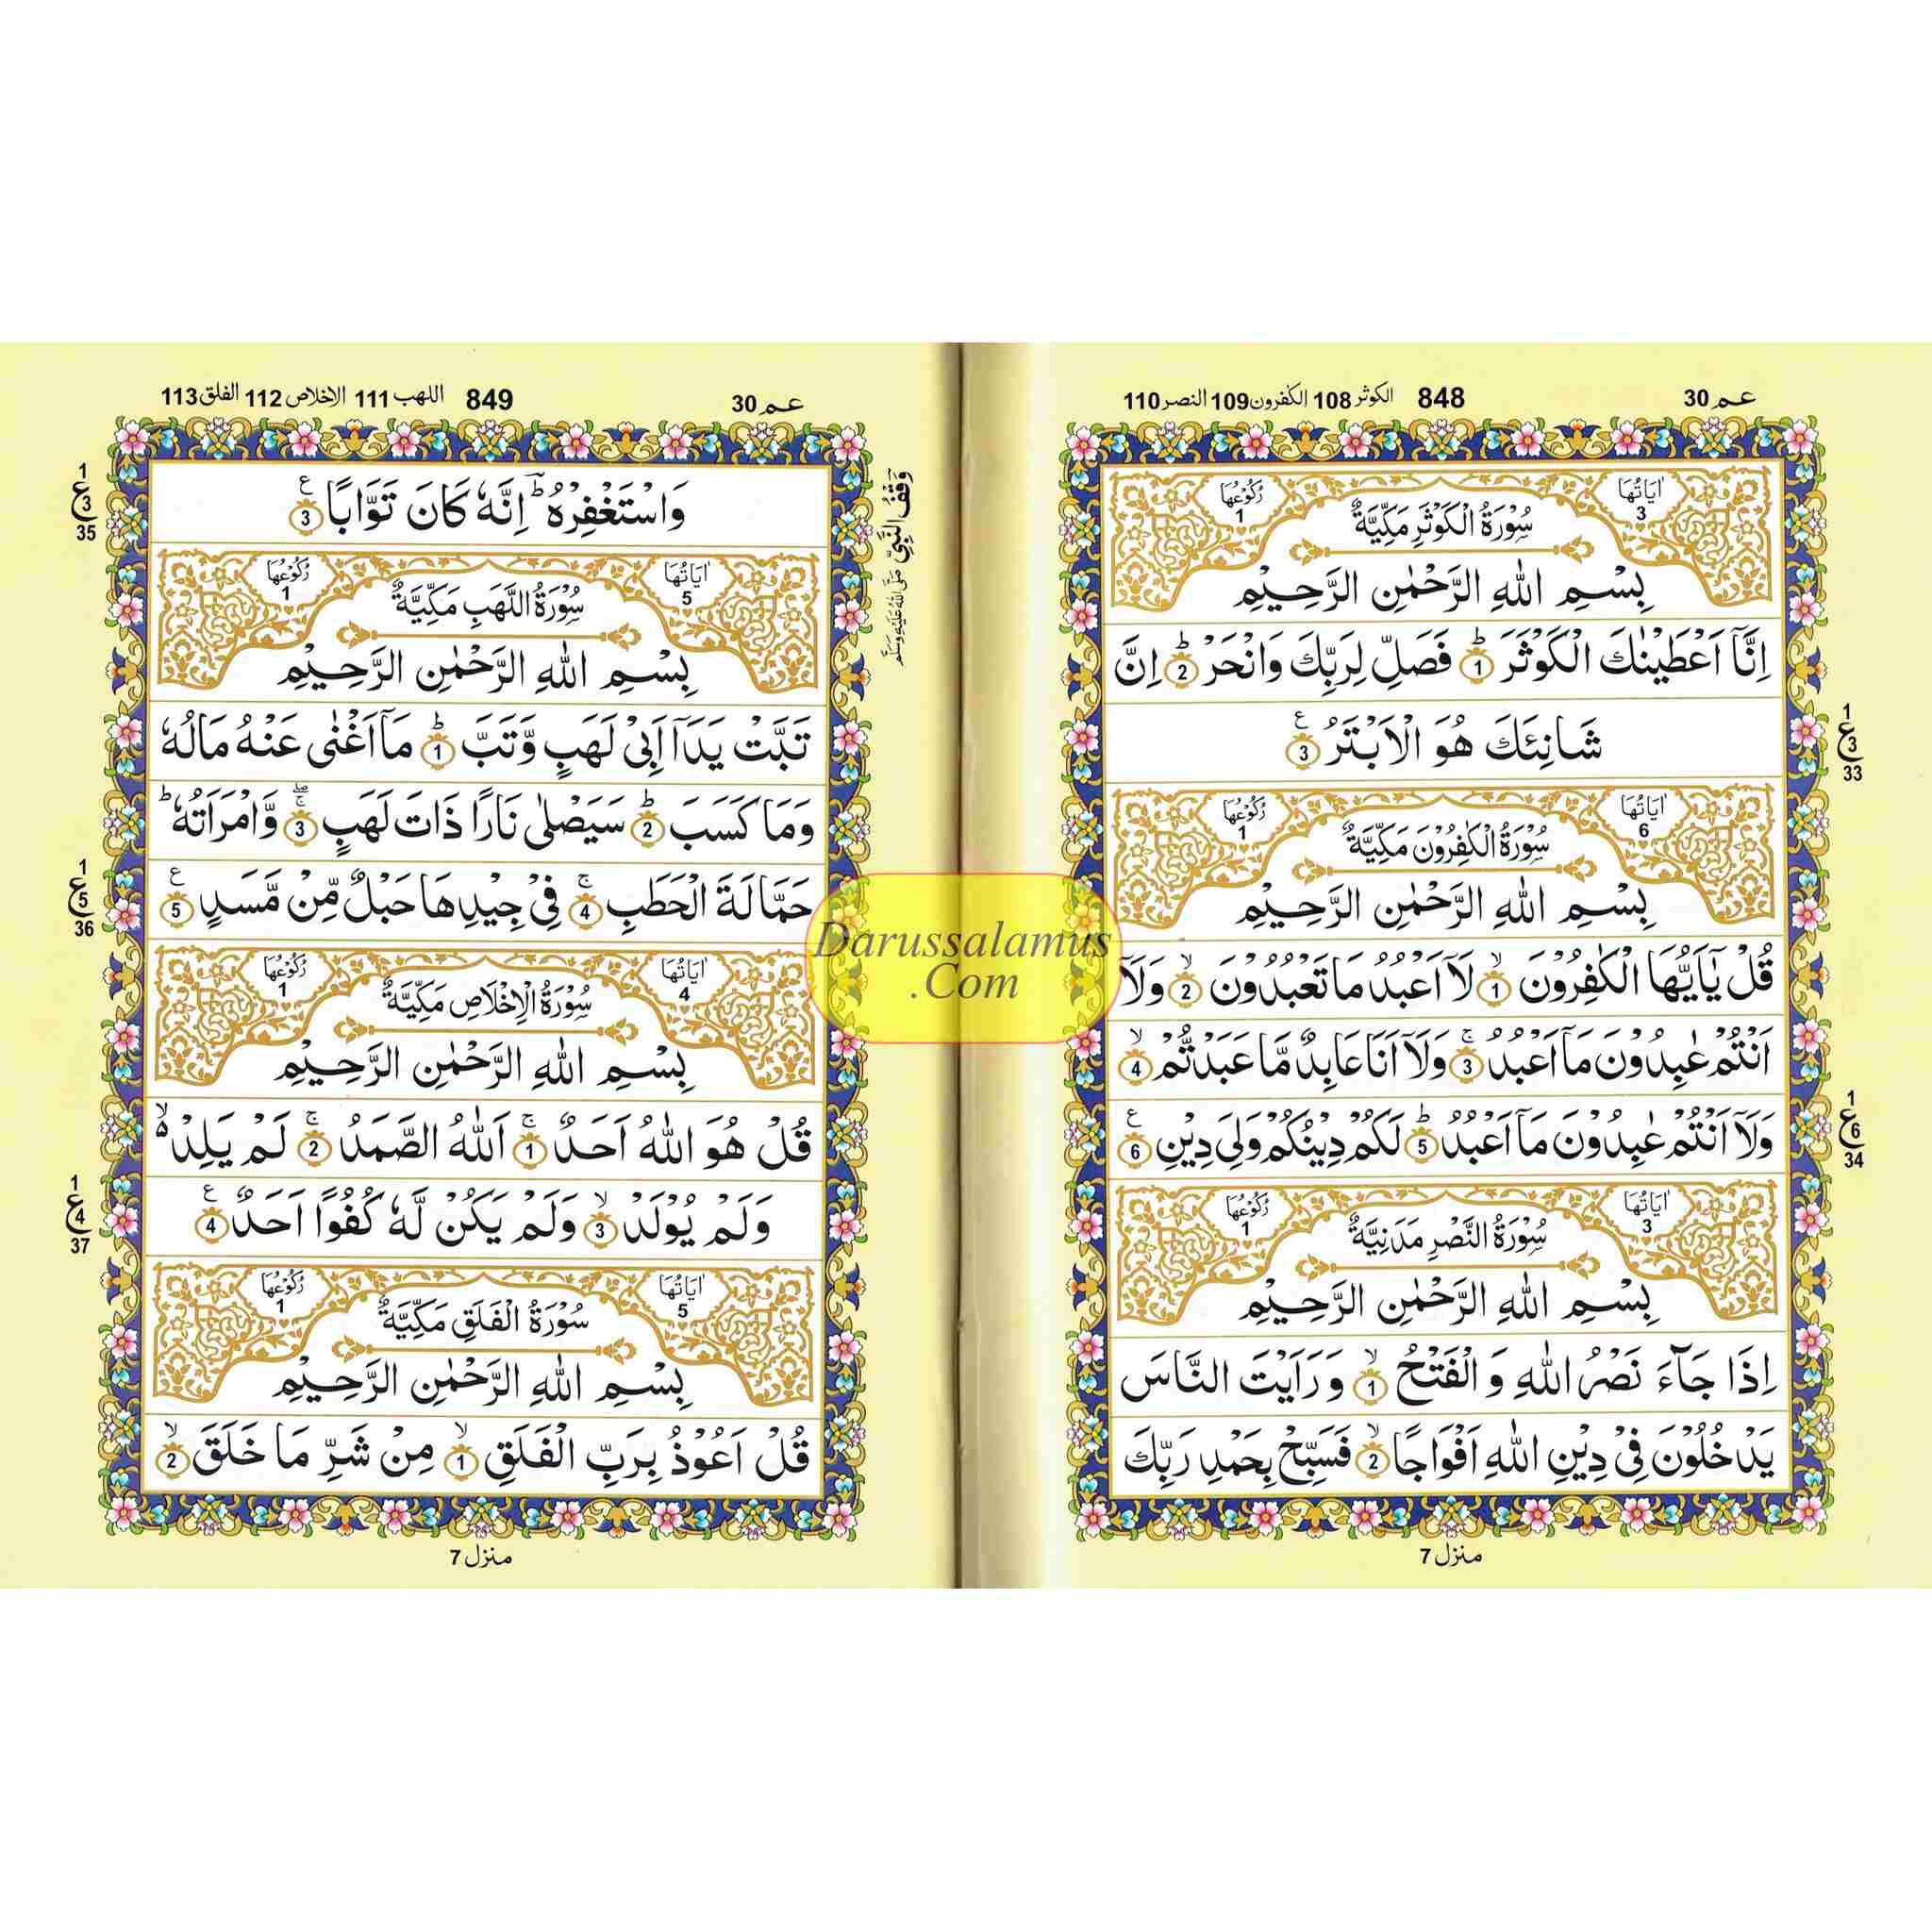 عم 30
848
الكوثر 108 الكفرون 109 النصر 110
اٰيَاتُهَا 3
رُكُوْعُهَا 1
سُوْرَةُ الْكَوْثَرِ مَكِّيَّةٌ
بِسْمِ اللّٰهِ الرَّحْمٰنِ الرَّحِيْمِ
اِنَّآ اَعْطَيْنٰكَ الْكَوْثَرَ ؕ 1 فَصَلِّ لِرَبِّكَ وَانْحَرْ ؕ 2 اِنَّ
شَانِئَكَ هُوَ الْاَبْتَرُ ع 3
1 ع 3 33
اٰيَاتُهَا 6
رُكُوْعُهَا 1
سُوْرَةُ الْكٰفِرُوْنَ مَكِّيَّةٌ
بِسْمِ اللّٰهِ الرَّحْمٰنِ الرَّحِيْمِ
قُلْ يٰٓاَيُّهَا الْكٰفِرُوْنَ ۙ 1 لَآ اَعْبُدُ مَا تَعْبُدُوْنَ ۙ 2 وَلَآ
اَنْتُمْ عٰبِدُوْنَ مَآ اَعْبُدُ ۚ 3 وَلَآ اَنَا عَابِدٌ مَّا عَبَدْتُّمْ ۙ 4
وَلَآ اَنْتُمْ عٰبِدُوْنَ مَآ اَعْبُدُ ؕ 5 لَكُمْ دِيْنُكُمْ وَلِيَ دِيْنِ ع 6
1 ع 6 34
اٰيَاتُهَا 3
رُكُوْعُهَا 1
سُوْرَةُ النَّصْرِ مَدَنِيَّةٌ
بِسْمِ اللّٰهِ الرَّحْمٰنِ الرَّحِيْمِ
اِذَا جَآءَ نَصْرُ اللّٰهِ وَ الْفَتْحُ ۙ 1 وَ رَاَيْتَ النَّاسَ
يَدْخُلُوْنَ فِيْ دِيْنِ اللّٰهِ اَفْوَاجًا ۙ 2 فَسَبِّحْ بِحَمْدِ رَبِّكَ
منزل 7
عم 30
849
اللهب 111 الاخلاص 112 الفلق 113
وَقْفُ النَّبِيِّ صَلَّى اللّٰهُ عَلَيْهِ وَسَلَّمَ
وَاسْتَغْفِرْهُ ؕ اِنَّهٗ كَانَ تَوَّابًا ع 3
1 ع 3 35
اٰيَاتُهَا 5
رُكُوْعُهَا 1
سُوْرَةُ اللَّهَبِ مَكِّيَّةٌ
بِسْمِ اللّٰهِ الرَّحْمٰنِ الرَّحِيْمِ
تَبَّتْ يَدَآ اَبِيْ لَهَبٍ وَّتَبَّ ؕ 1 مَآ اَغْنٰى عَنْهُ مَالُهٗ
وَمَا كَسَبَ ؕ 2 سَيَصْلٰى نَارًا ذَاتَ لَهَبٍ 3 وَّامْرَاَتُهٗ ؕ
حَمَّالَةَ الْحَطَبِ ۚ 4 فِيْ جِيْدِهَا حَبْلٌ مِّنْ مَّسَدٍ ع 5
1 ع 5 36
اٰيَاتُهَا 4
رُكُوْعُهَا 1
سُوْرَةُ الْاِخْلَاصِ مَكِّيَّةٌ
بِسْمِ اللّٰهِ الرَّحْمٰنِ الرَّحِيْمِ
قُلْ هُوَ اللّٰهُ اَحَدٌ ۚ 1 اَللّٰهُ الصَّمَدُ ۚ 2 لَمْ يَلِدْ ۙ
وَلَمْ يُوْلَدْ ۙ 3 وَلَمْ يَكُنْ لَّهٗ كُفُوًا اَحَدٌ ع 4
1 ع 4 37
اٰيَاتُهَا 5
رُكُوْعُهَا 1
سُوْرَةُ الْفَلَقِ مَكِّيَّةٌ
بِسْمِ اللّٰهِ الرَّحْمٰنِ الرَّحِيْمِ
قُلْ اَعُوْذُ بِرَبِّ الْفَلَقِ ۙ 1 مِنْ شَرِّ مَا خَلَقَ ۙ 2
منزل 7
Darussalamus
.Com